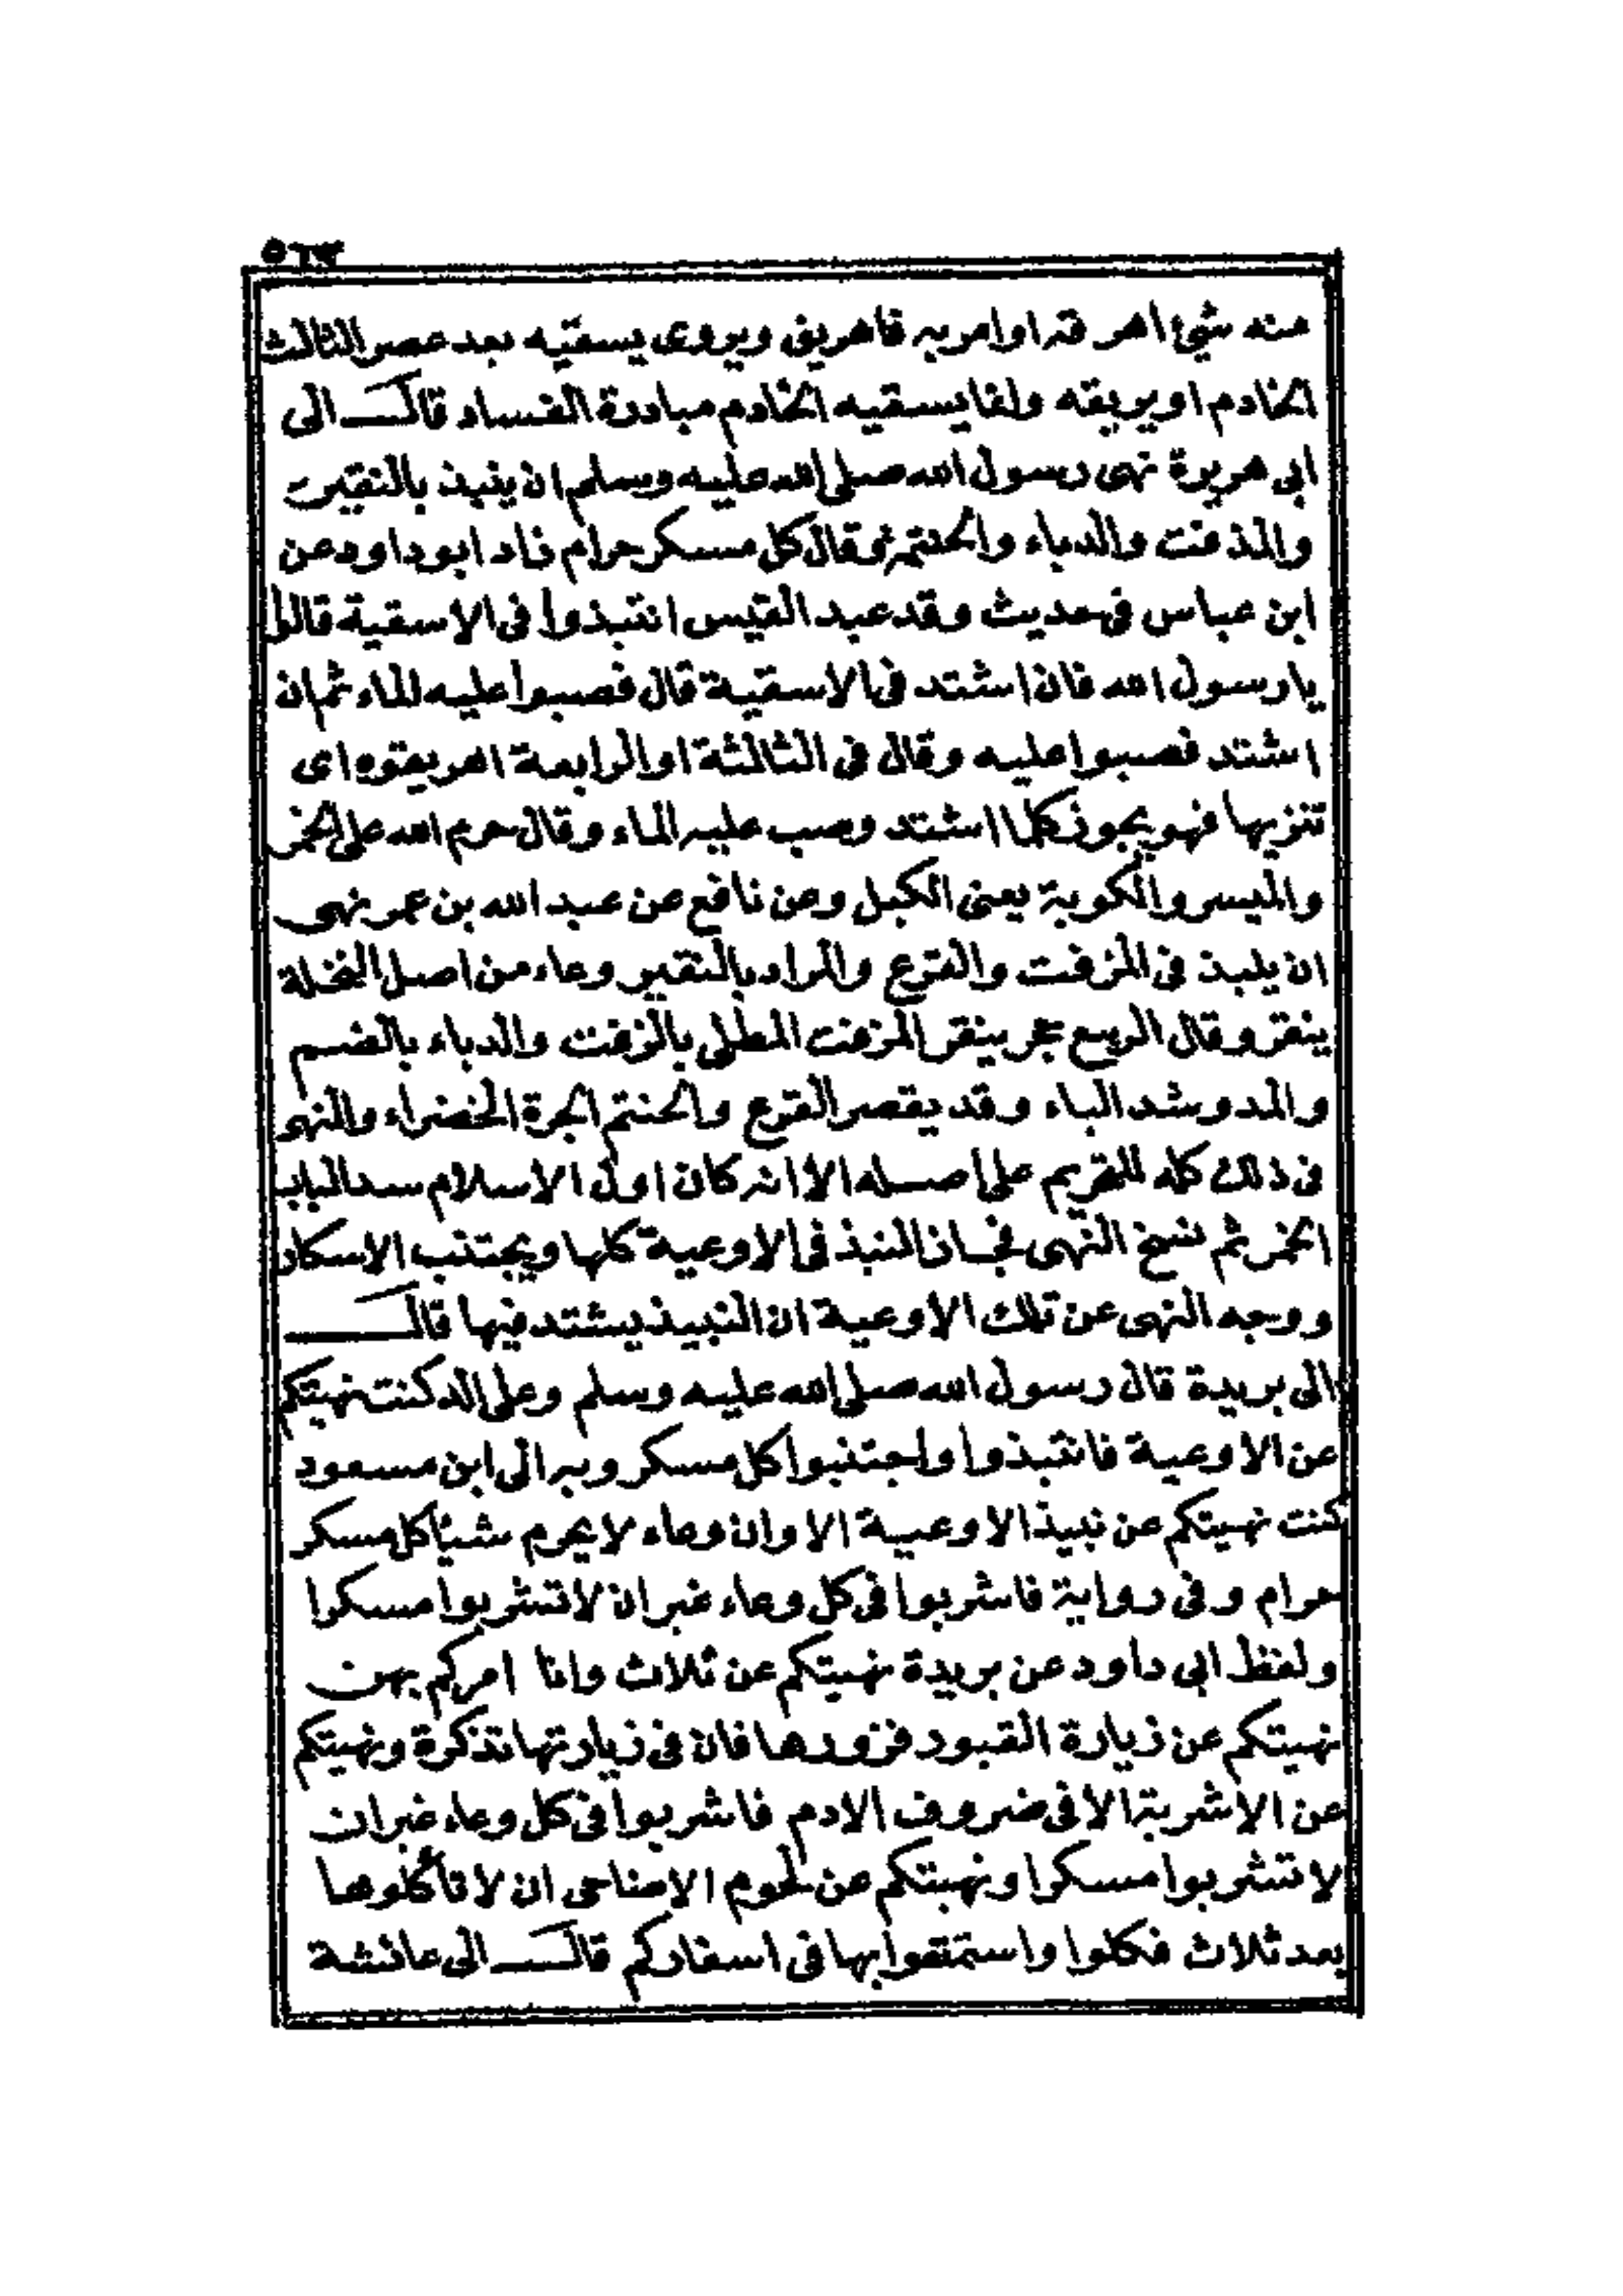 ٥٦٣
منه شيئ اهرقته او امر به فاهريق ويروى يسقيه بعد عصر الثالث
الخادم او يريقه وانما يسقيه الخادم مبادرة الفساد قال الى
ابى هريرة نهى رسول الله صلى الله عليه وسلم ان ينبذ بالنقير
والمزفت والدباء والحنتم وقال كل مسكر حرام زاد ابو داود عن
ابن عباس فى حديث وفد عبد القيس انتبذوا فى الاسقية قالوا
يا رسول الله فان اشتد فى الاسقية قال فصبوا عليه الماء ثم ان
اشتد فصبوا عليه وقال فى الثالثة او الرابعة اهريقوه اى
تنزيها فهو يجوز كلما اشتد وصب عليه الماء وقال حرم الله على الخمر
والميسر والكوبة يعنى الكبل وعن نافع عن عبد الله بن عمر نهى
ان ينبذ فى المزفت والقرع والمراد بالنقير وعاء من اصل النخلة
ينقر وقال الربيع حجر ينقر المزفت المطلى بالزفت والدباء بالضم
والمد وشد الباء وقد يقصر القرع والحنتم الجرة الخضراء والنهى
فى ذلك كله للتحريم على اصله الا انه كان اول الاسلام سد الباب
الخمر ثم نسخ النهى فجاز النبذ فى الاوعية كلها ويجتنب الاسكار
ووجه النهى عن تلك الاوعية ان النبيذ يشتد فيها قال
الى بريدة قال رسول الله صلى الله عليه وسلم وعلى اله كنت نهيتكم
عن الاوعية فانتبذوا واجتنبوا كل مسكر وبه الى ابن مسعود
كنت نهيتكم عن نبيذ الاوعية الا وان وعاء لا يحرم شيئا كل مسكر
حرام وفى رواية فاشربوا فى كل وعاء غير ان لا تشربوا مسكرا
ولفظ ابى داود عن بريدة نهيتكم عن ثلاث وانا امركم بهن
نهيتكم عن زيارة القبور فزوروها فان فى زيارتها تذكرة ونهيتكم
عن الاشربة الا فى ضروف الادم فاشربوا فى كل وعاء غير ان
لا تشربوا مسكرا ونهيتكم عن لحوم الاضاحى ان لا تاكلوها
بعد ثلاث فكلوا واستمتعوا بها فى اسفاركم قال الى عائشة